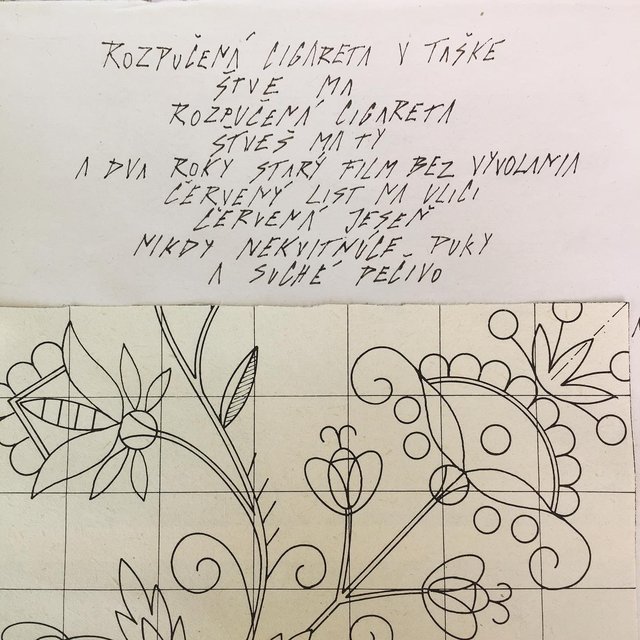 ROZPUČENÁ CIGARETA V TAŠKE
ŠTVE MA
ROZPUČENÁ CIGARETA
ŠTVEŠ MA TY
A DVA ROKY STARÝ FILM BEZ VYVOLANIA
ČERVENÝ LIST NA ULICI
ČERVENÁ JESEŇ
NIKDY NEKVITNÚCE PUKY
A SUCHÉ PEČIVO